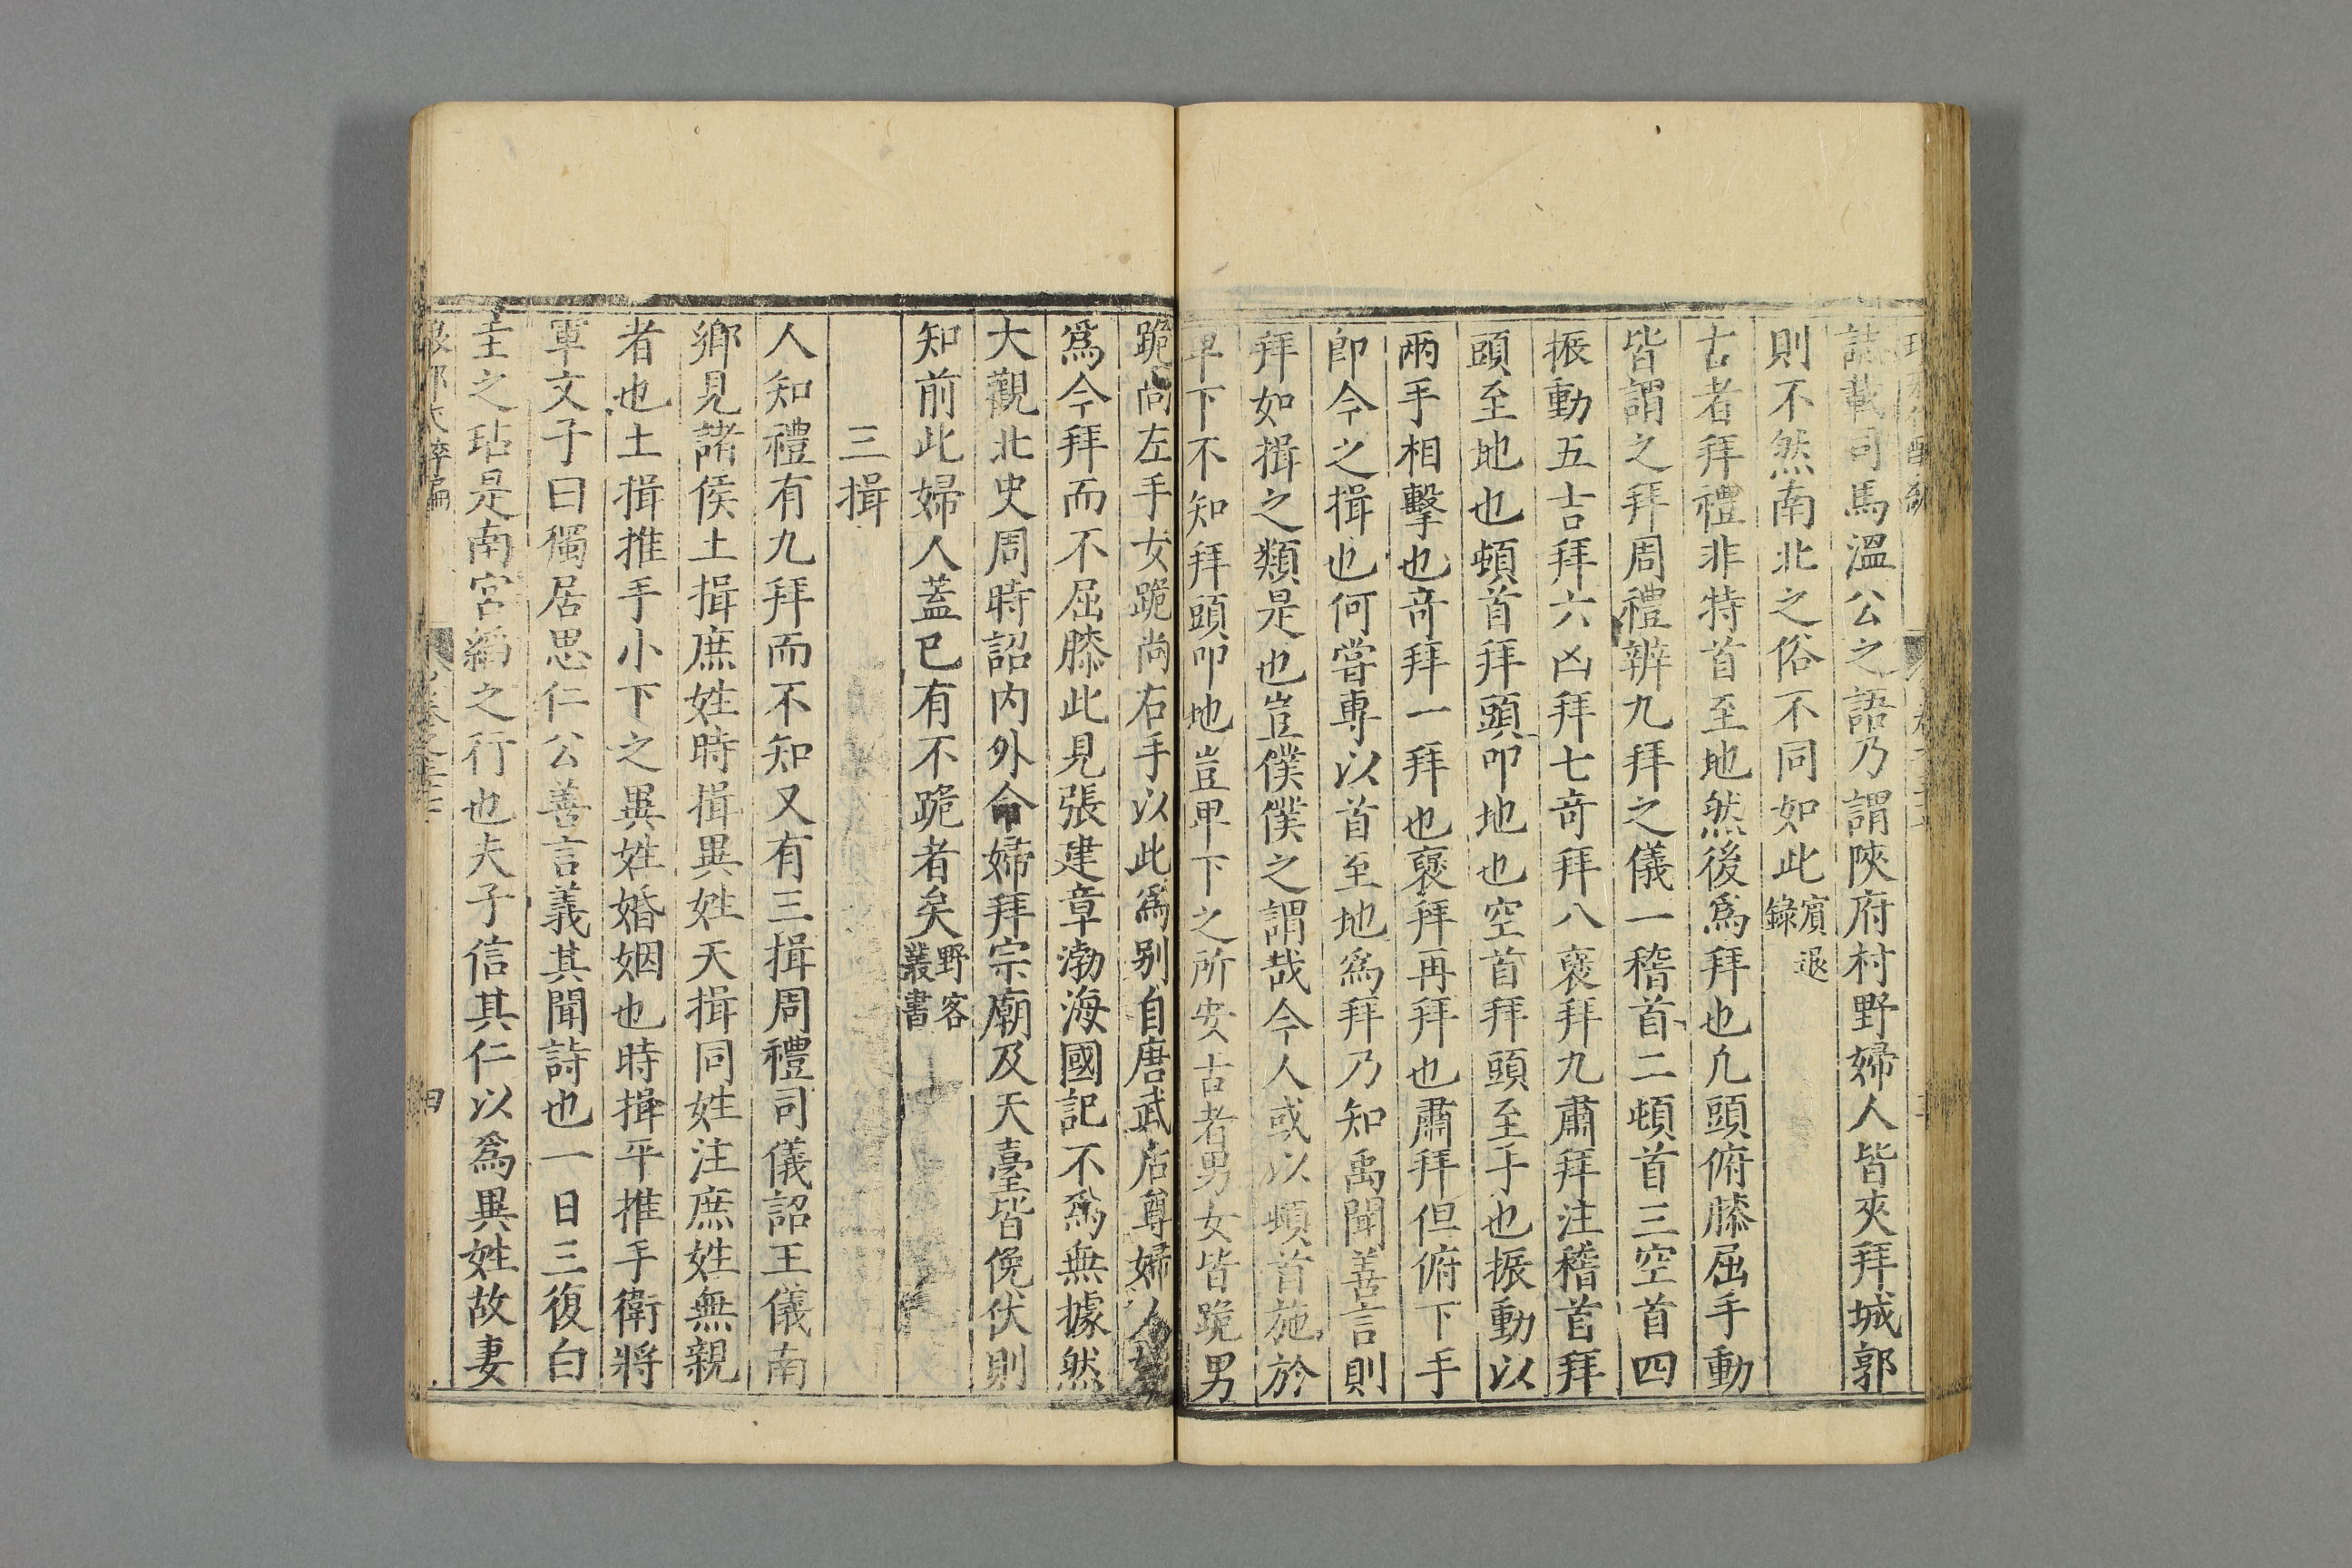 誌載司馬溫公之語乃謂陝府村野婦人皆夾拜城郭
則不然南北之俗不同如此賔退錄
古者拜禮非特首至地然後爲拜也凢頭俯膝屈手動
皆謂之拜周禮辨九拜之儀一稽首二頓首三空首四
振動五吉拜六凶拜七竒拜八襃拜九肅拜注稽首拜
頭至地也頓首拜頭叩地也空首拜頭至手也振動以
兩手相擊也竒拜一拜也襃拜再拜也肅拜但俯下手
卽今之揖也何嘗専以首至地爲拜乃知禹聞善言則
拜如揖之類是也豈僕僕之謂哉今人或以頓首施於
卑下不知拜頭叩地豈卑下之所安古者男女皆跪男
跪尚左手女跪尚右手以此爲别自唐武后尊婦人
爲今拜而不屈膝此見張建章渤海國記不爲無據然
大觀北史周時詔内外命婦拜宗廟及天臺皆俛伏則
知前此婦人蓋已有不跪者矣野客叢書
三揖
人知禮有九拜而不知又有三揖周禮司儀詔王儀南
鄉見諸侯土揖庶姓時揖異姓天揖同姓注庶姓無親
者也土揖推手小下之異姓婚姻也時揖平推手衛將
軍文子曰獨居思仁公善言義其聞詩也一日三復白
圭之玷是南宮縚之行也夫子信其仁以爲異姓故妻